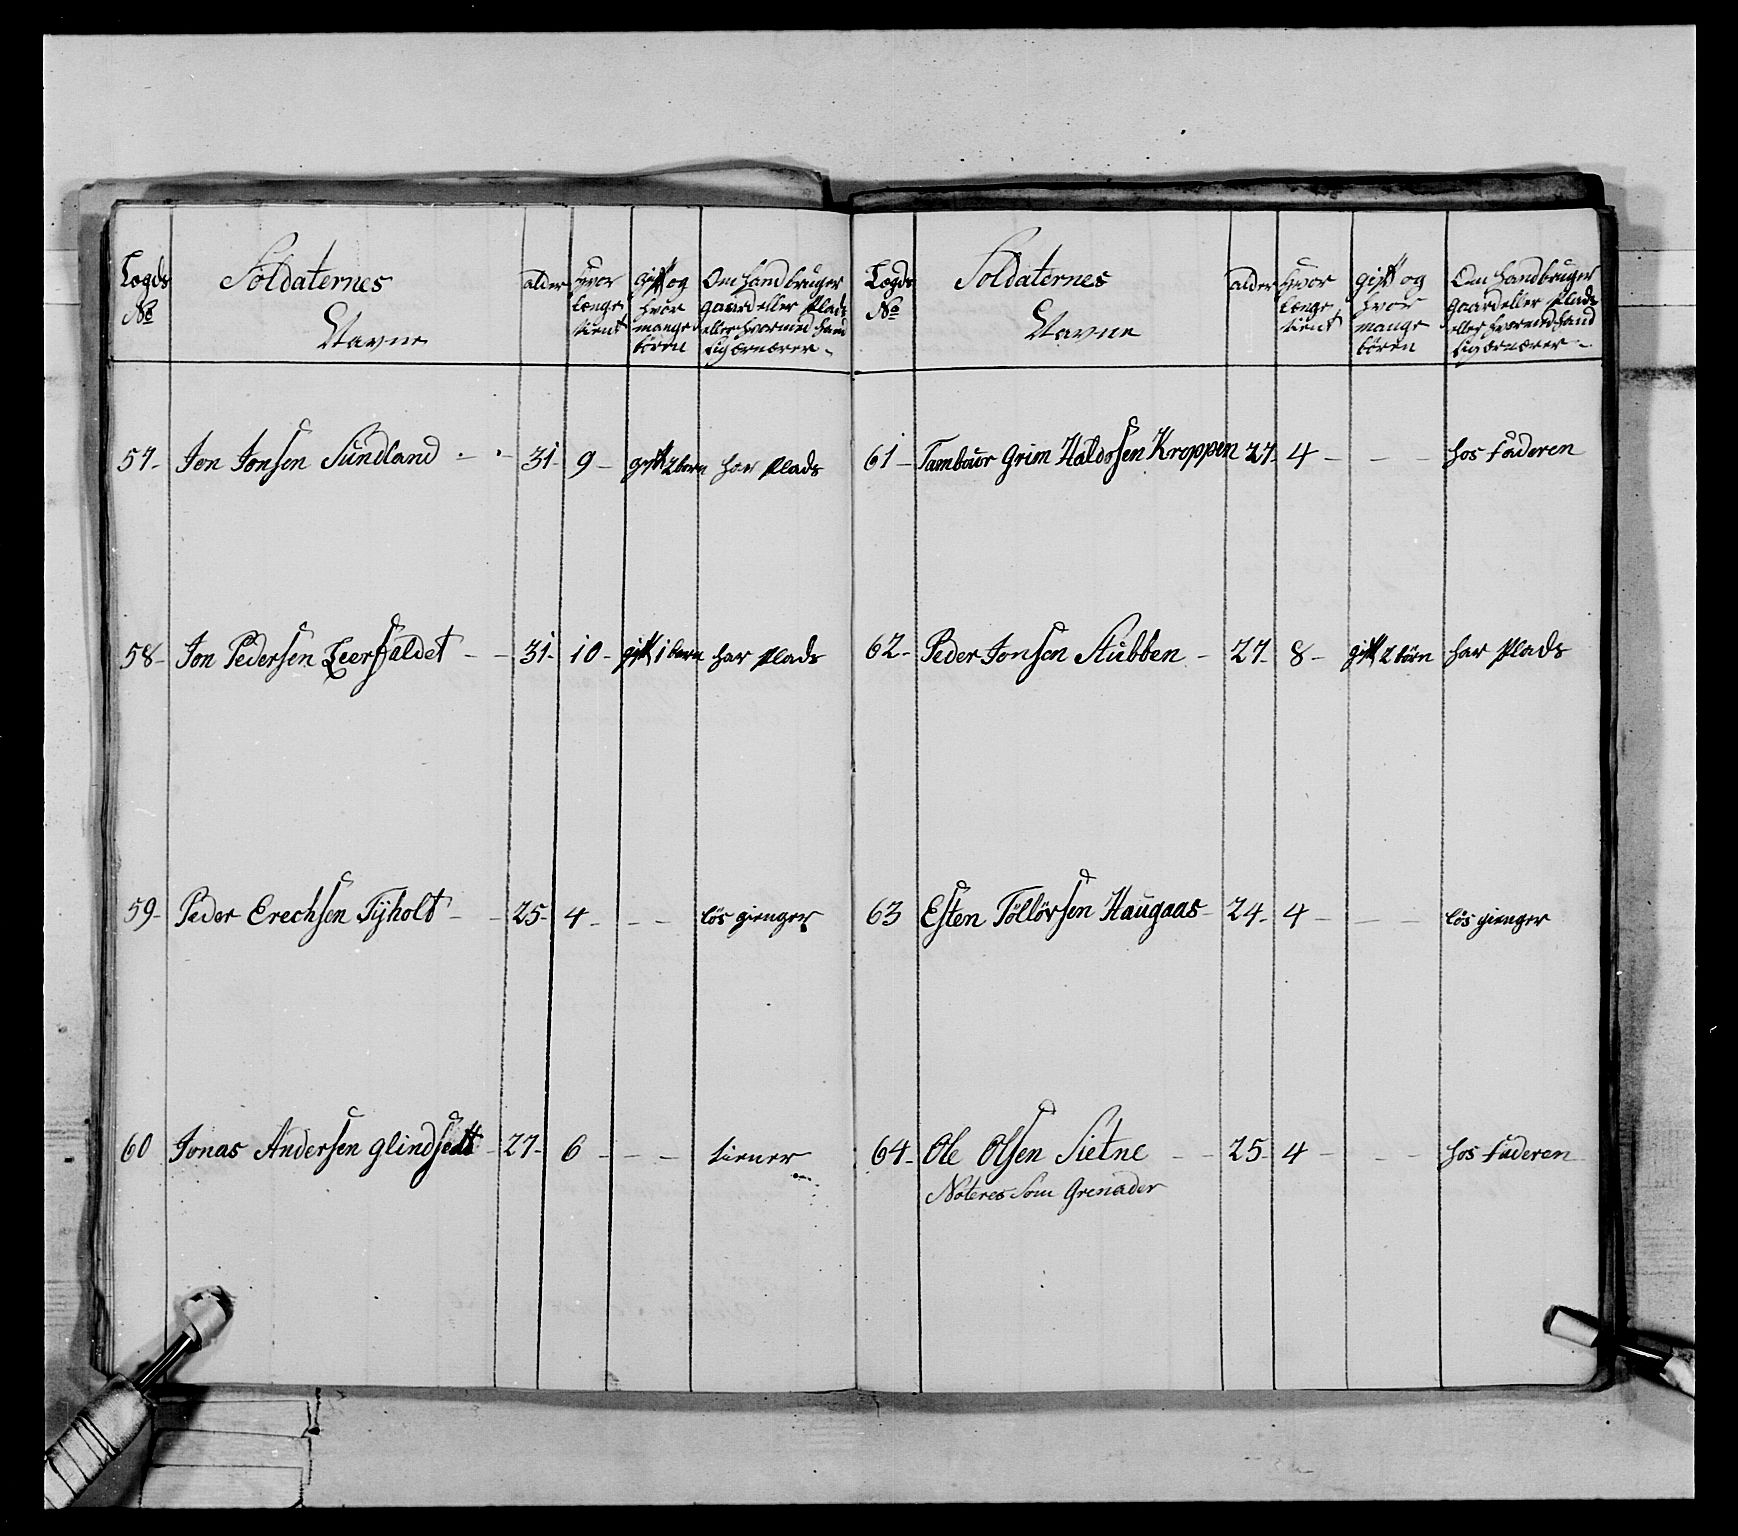 Lægds
No
Soldaternes
Navne
alder
hvor
længe
tient
gift og
hvor
mange
börn
Om hand bruger
gaard eller Plads
eller hvormed hand
sig ernærer
57- Jon Jonsen Sundland - - 31- 9- gift 2 börn har Plads
58- Jon Pedersen Leersfaldet - - 31- 10- gift 1 börn har Plads
59- Peder Erechsen Tyholt - - 25- 4- - - lös gienger
60 Jonas Andersen Glindsett - 27- 6- - - tiener
Lægds
No
Soldaternes
Navne
alder
hvor
længe
tient
gift og
hvor
mange
börn
Om hand bruger
gaard eller Plads
eller hvormed hand
sig ernærer
61- Tambour Grim Haldosen Kroppen 27- 4- - - hos faderen
62- Peder Jonsen Stubben - 27- 8- gift 2 börn har Plads
63 Esten Tollörsen Haugaas - 24- 4- - - lös gienger
64- Ole Olsen Sietne - - 25- 4- - - hos faderen
Noteres Som Grenader